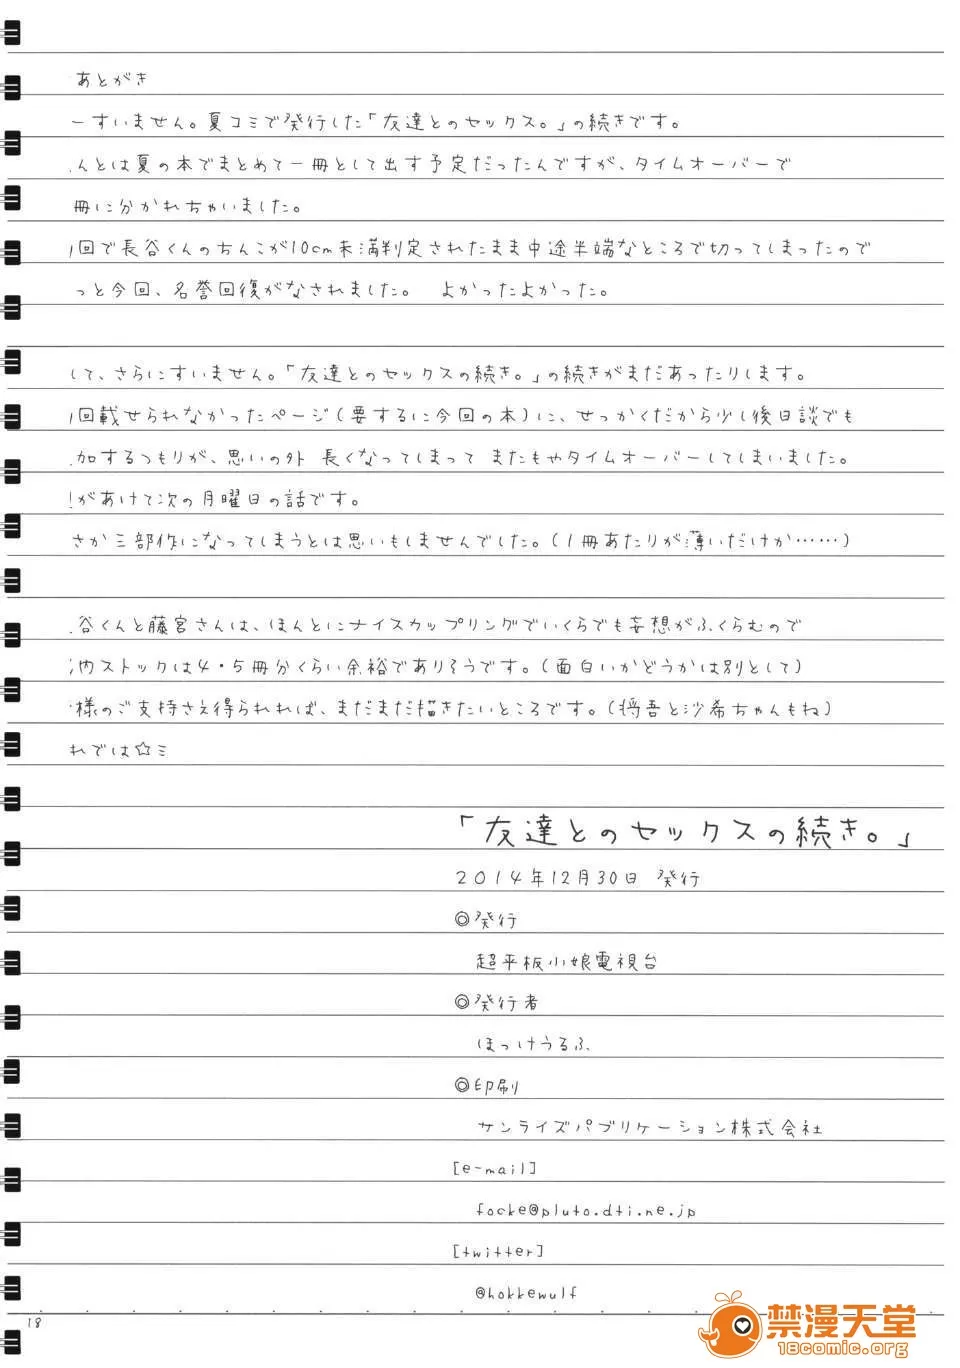 あとがき
ーすいません。夏コミで発行した「友達とのセックス。」の続きです。
んとは夏の本でまとめて一冊として出す予定だったんですが、タイムオーバーで
冊に分かれちゃいました。
回で長谷くんのちんこが10cm未満判定されたまま中途半端なところで切ってしまったので
っと今回、名誉回復がなされました。 よかったよかった。
して、さらにすいません。「友達とのセックスの続き。」の続きがまだあったりします。
回載せられなかったページ(要するに今回の本)に、せっかくだから少し後日談でも
加するつもりが、思いの外 長くなってしまって またもやタイムオーバーしてしまいました。
があけて次の月曜日の話です。
さか三部作になってしまうとは思いもしませんでした。(1冊あたりが薄いだけか……)
谷くんと藤宮さんは、ほんとにナイスカップリングでいくらでも妄想がふくらむので
内ストックは4・5冊分くらい余裕でありそうです。(面白いかどうかは別として)
様のご支持さえ得られれば、まだまだ描きたいところです。(将吾と沙希ちゃんもね)
れでは☆ミ
「友達とのセックスの続き。」
2014年12月30日 発行
◎発行
超平板小娘電視台
◎発行者
ほっけうるふ
◎印刷
サンライズパブリケーション株式会社
[e-mail]
focke@pluto.dti.ne.jp
[twitter]
@hokkewulf
18
禁漫天堂
18comic.org